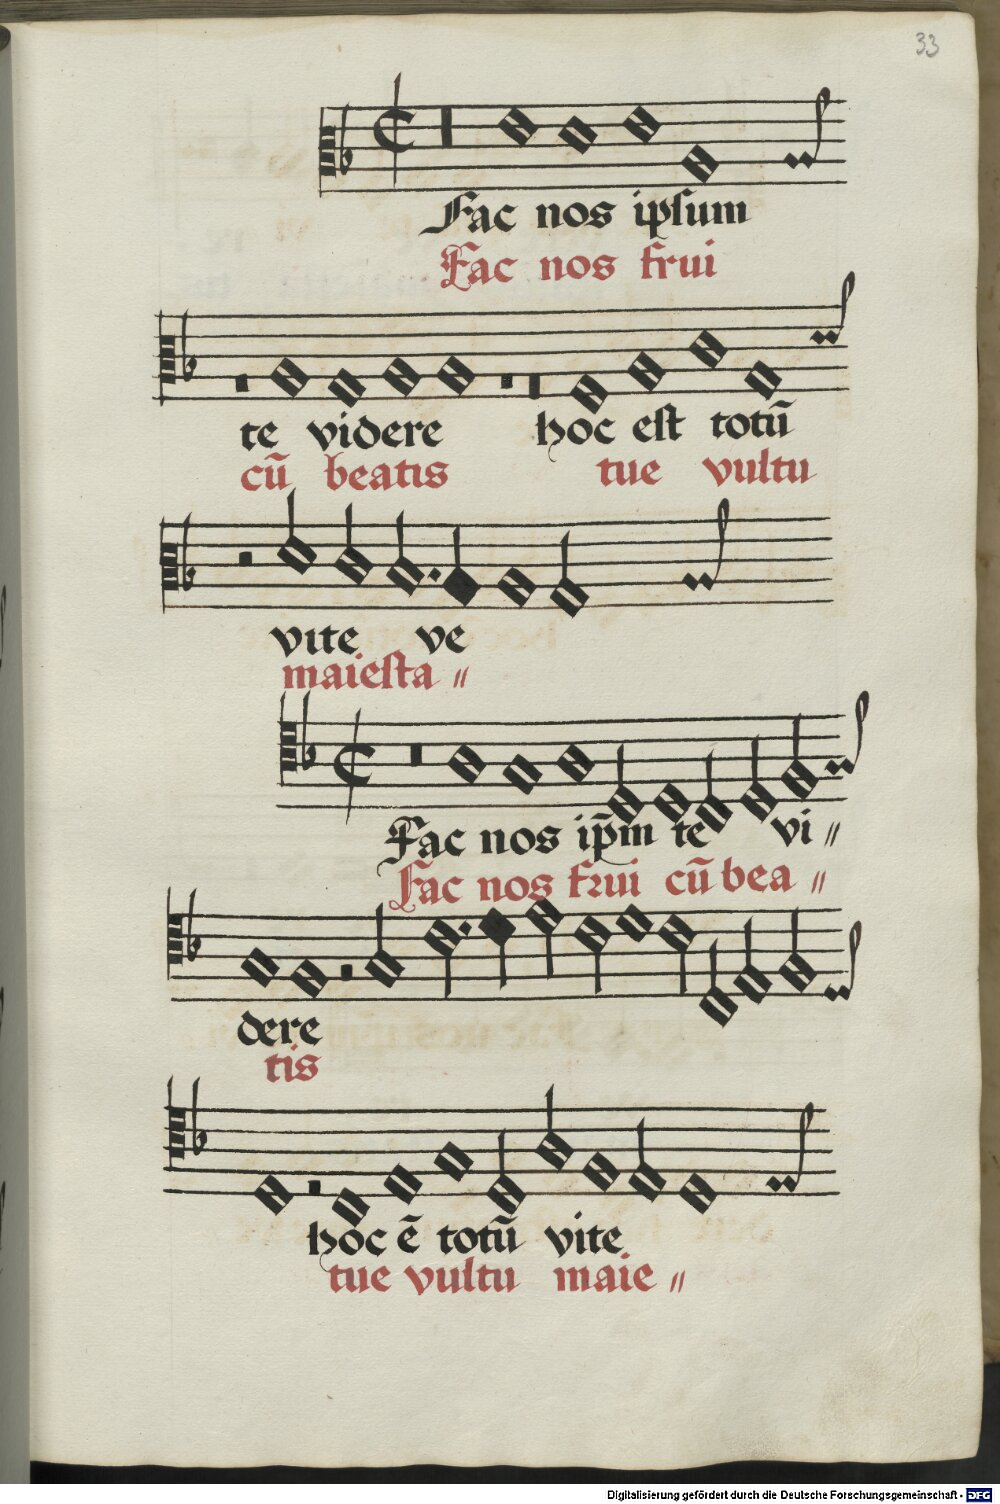 33
Fac nos ipſum
Fac nos frui
te videre hoc eſt totū
cū beatis tue vultu
vite ve
maieſta //
Fac nos ip̄m te vi //
Fac nos frui cū bea //
dere
tis
hoc ē totū vite
tue vultu maie //
Digitalisierung gefördert durch die Deutsche Forschungsgemeinschaft - DFG